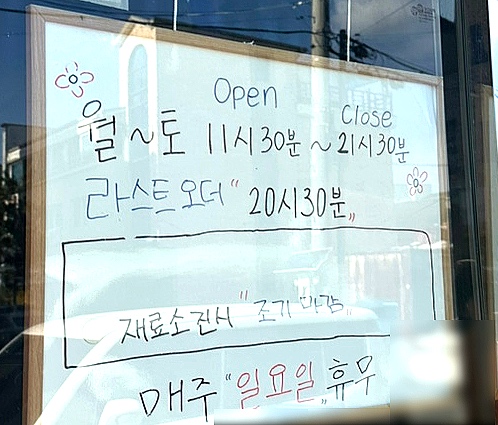 Open
Close
월~토 11시30분~21시30분
라스트오더 "20시30분"
재료소진시 "조기마감"
매주 "일요일" 휴무